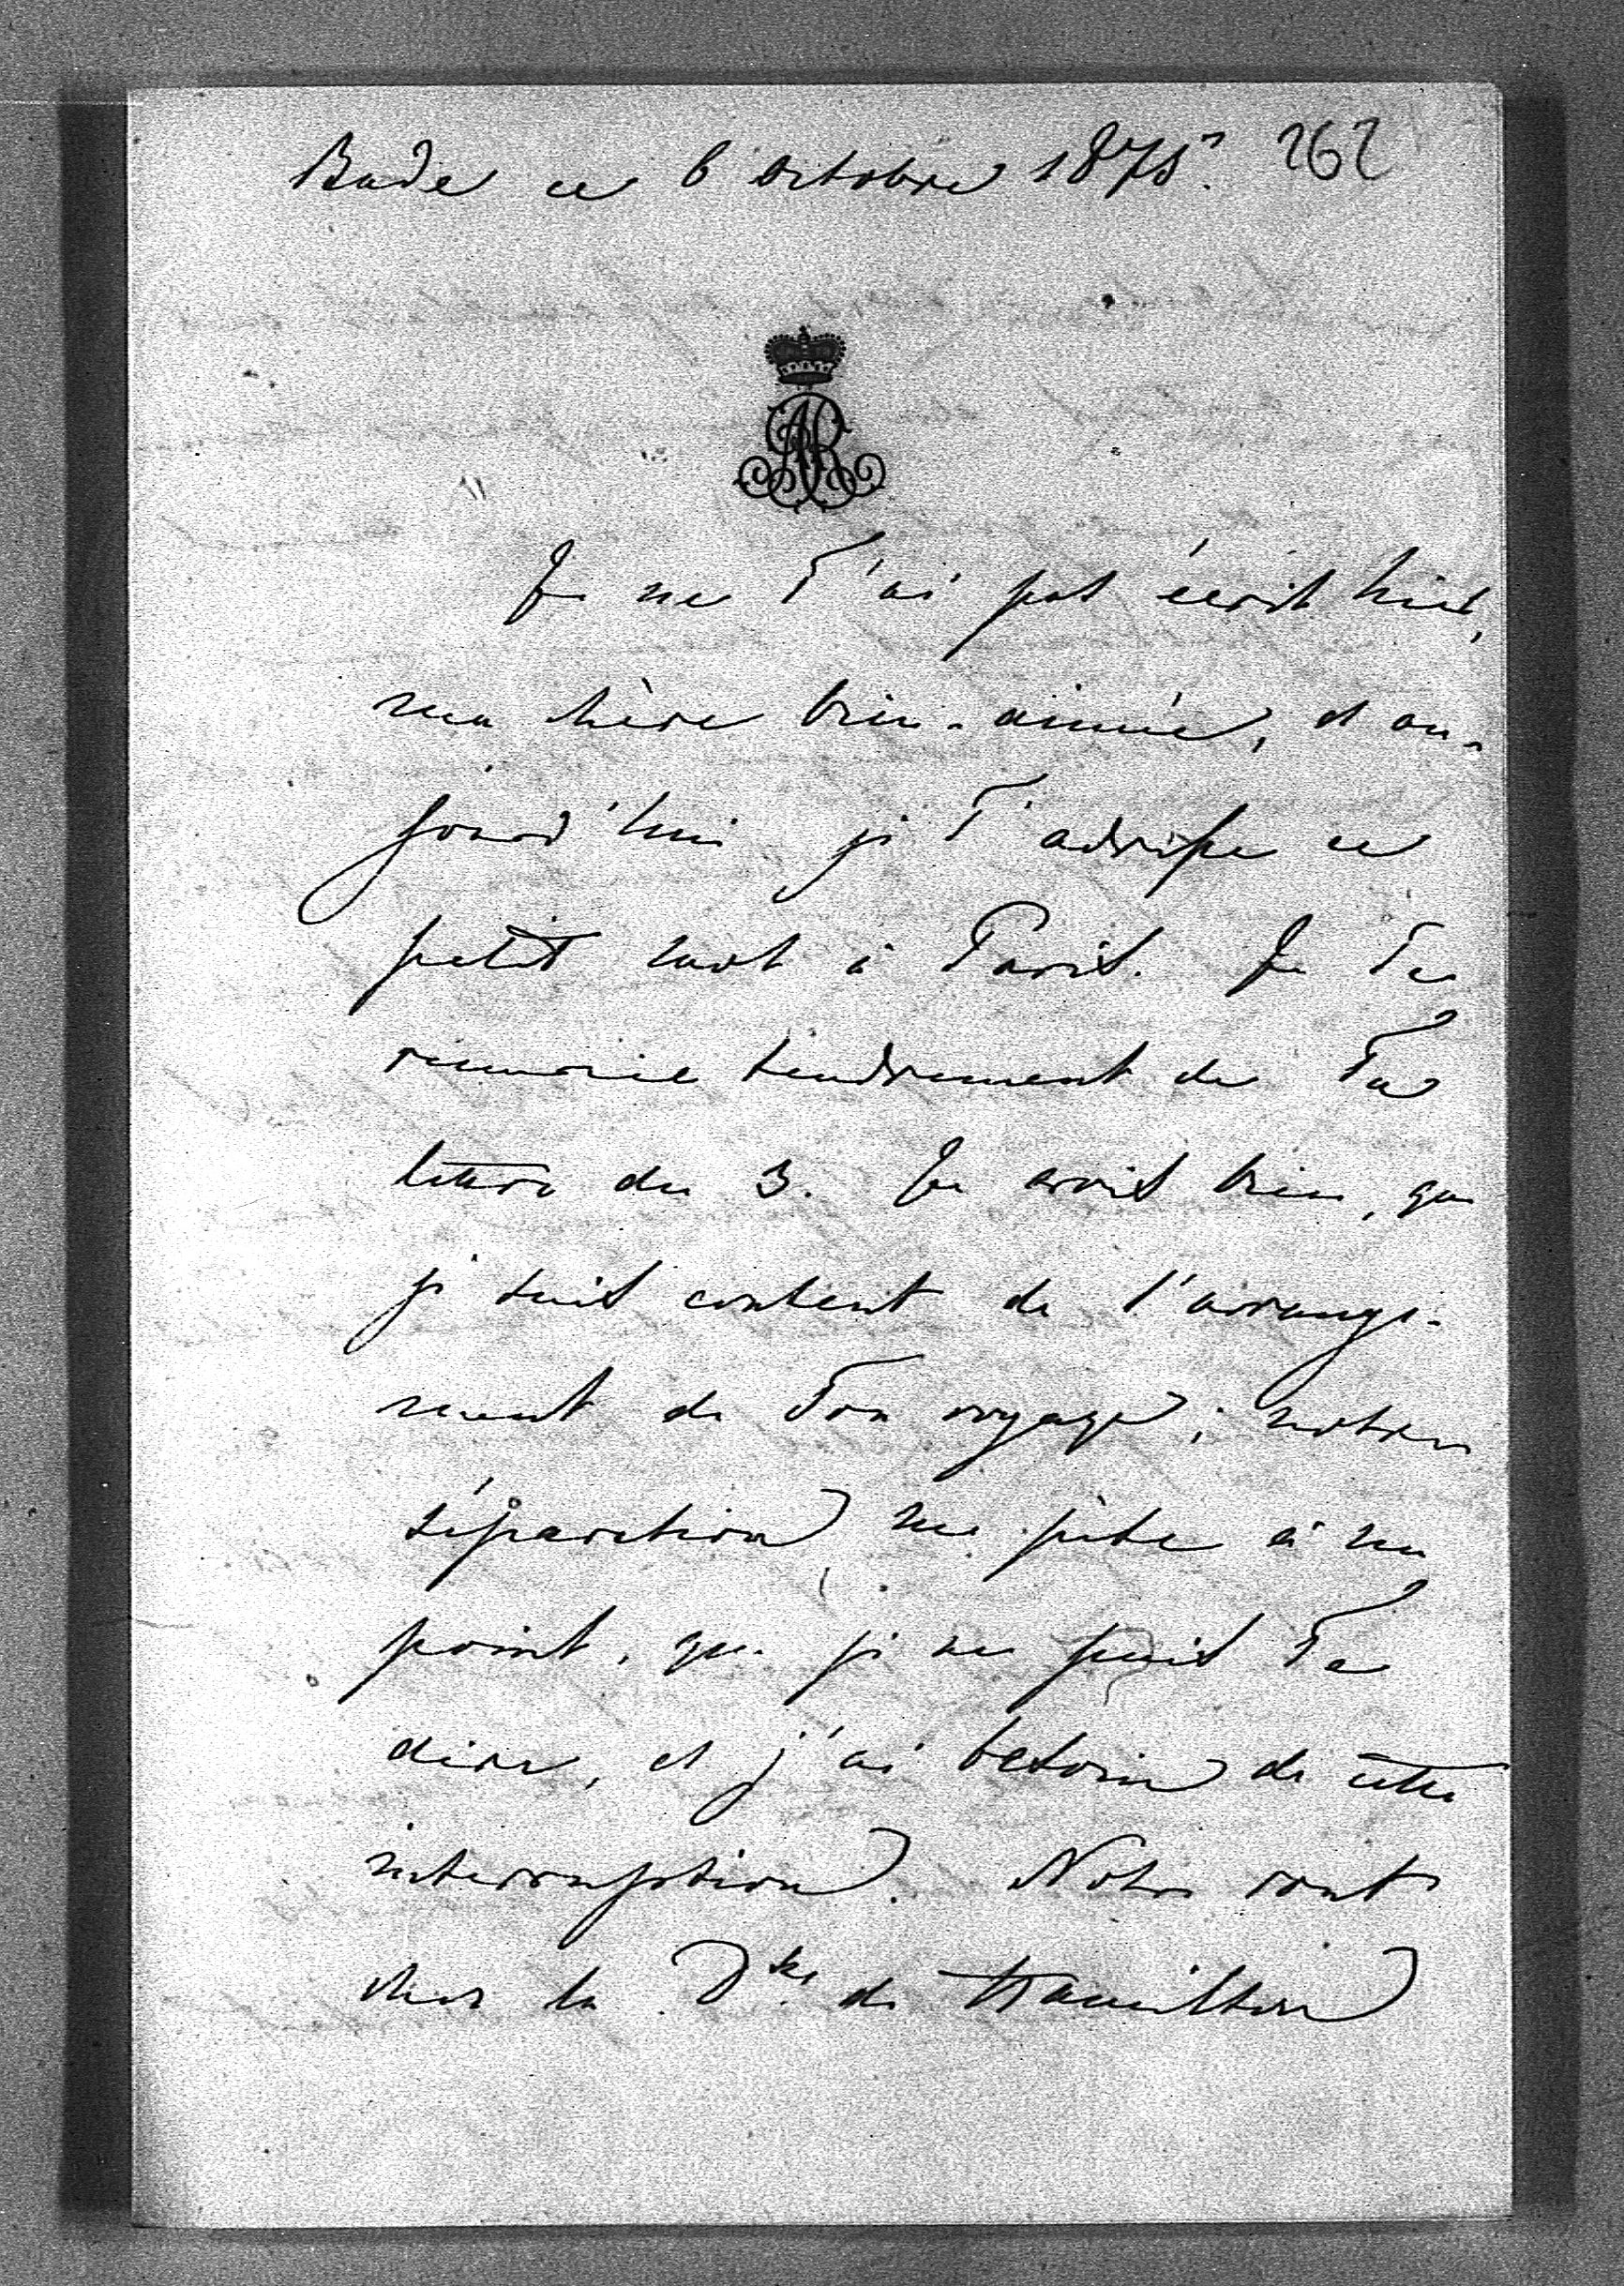 Bade ce 6 Octobre 1875. 262
AR
Je ne T'ai pas écrit hier,
ma chère bien-aimée, et au-
jourd'hui je T'adresse ce
petit mot à Paris. Je Te
remercie tendrement de Ta
lettre du 3. Je crois bien, que
je suis content de l'arrange-
ment de Ton voyage; notre
séparation me pèse à un
point, que je ne puis Te
dire, et j'ai besoin de cette
interruption. Notre
chez la Dsse de Hamilton